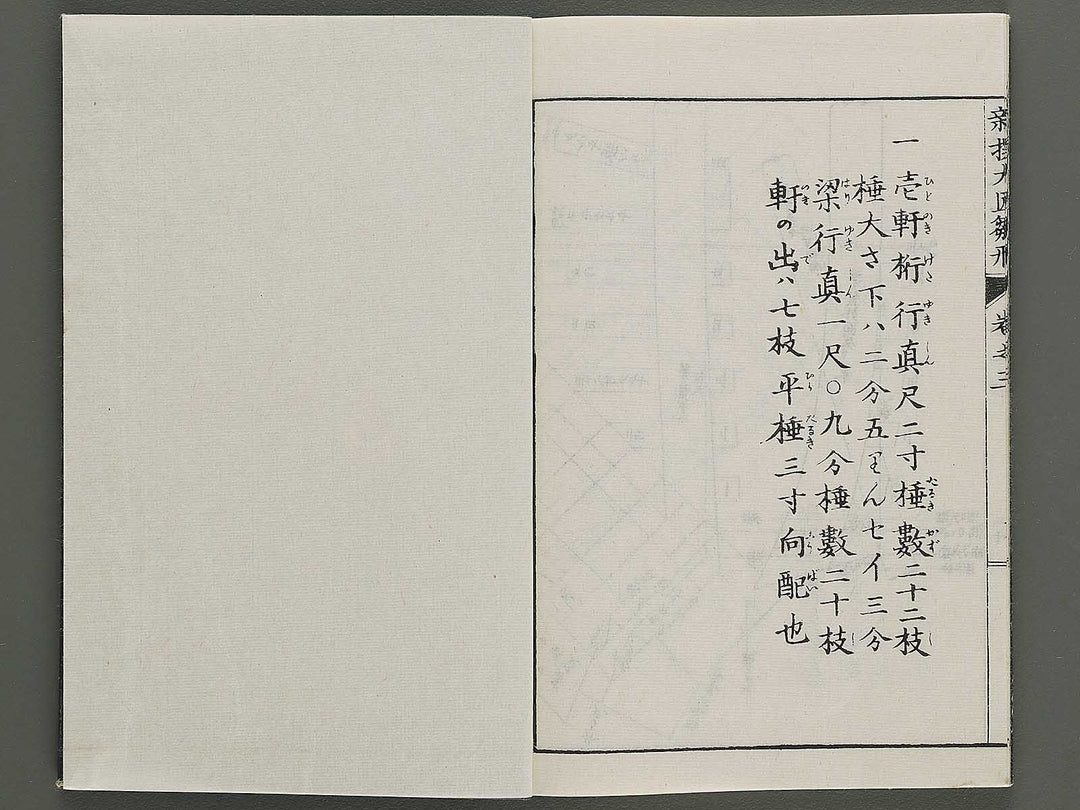 一壱軒桁行真尺二寸棰數二十二枝
棰大さ下ハ二分五りんセイ三分
梁行真一尺〇九分棰數二十枝
軒の出ハ七枝平棰三寸向配也
新撰大匠雛形 巻之三